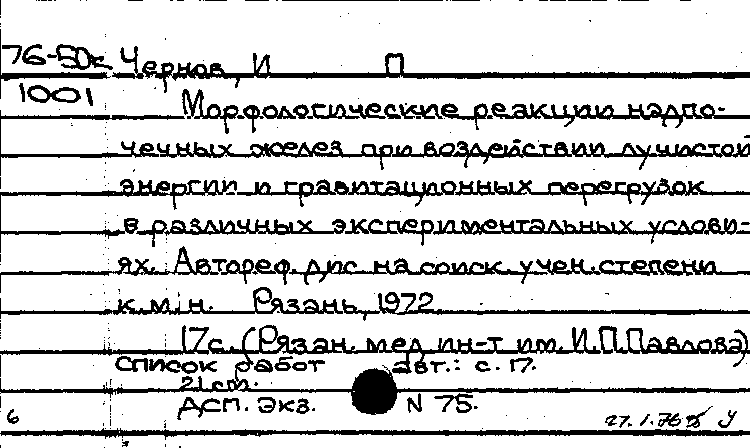 76-50к Чернов, И П
1001
Морфологические реакции надпо-
чечных желез при воздействии лучистой
энергии и гравитационных перегрузок
в различных экспериментальных услови-
ях. Автореф. дис. на соиск. учен. степени
к.м.н. Рязань, 1972
17с. (Рязан. мед ин-т им. И.П.Павлова)
Список работ авт.: с. 17.
21 cm.
ДСП. Экз. N 75.
6 27.1.76